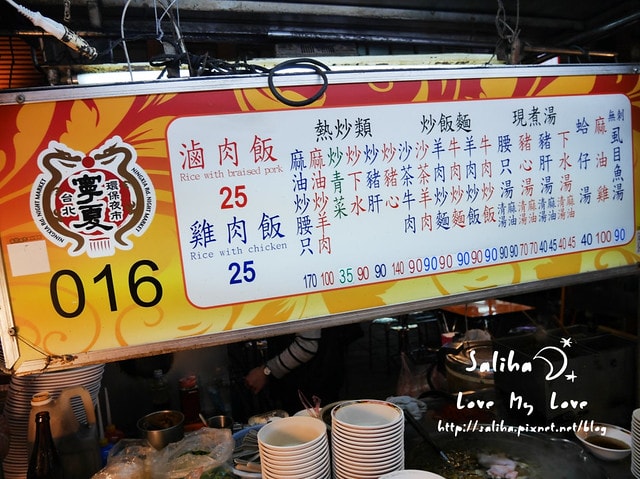 寧夏
環保夜市
台北
NINGXIA RD. NIGHT MARKET
NINGXIA RD. NIGHT MARKET
016
滷肉飯
Rice with braised pork
25
雞肉飯
Rice with chicken
25
熱炒類
麻油炒腰只 170
麻油炒羊肉 100
炒青菜 35
炒下水 90
炒豬肝 90
炒豬心 140
沙茶牛肉 90
沙茶羊肉 90
炒飯麵
羊肉炒麵 90
牛肉炒麵 90
羊肉炒飯 90
牛肉炒飯 90
現煮湯
腰只湯 清油 麻油 90 90
豬心湯 清油 麻油 70 70
豬肝湯 清油 麻油 40 45
下水湯 清油 麻油 40 45
蛤仔湯 40
麻油雞 100
無刺虱目魚湯 90
Saliha
Love My Love
http://saliha.pixnet.net/blog